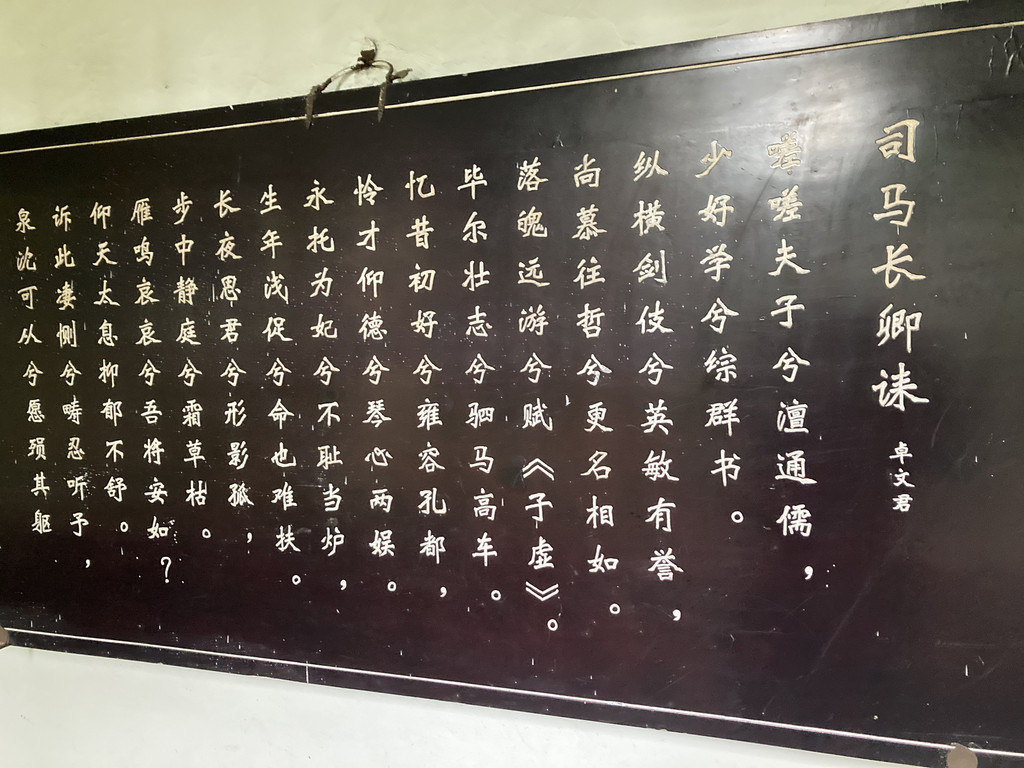 司马长卿诔 卓文君
嗟嗟夫子兮澶通儒，
少好学兮综群书。
纵横剑伎兮英敏有誉，
尚慕往哲兮更名相如。
落魄远游兮赋《子虚》。
毕尔壮志兮驷马高车。
忆昔初好兮雍容孔都，
怜才仰德兮琴心两娱。
永托为妃兮不耻当炉，
生年浅促兮命也难扶。
长夜思君兮形影孤，
步中静庭兮霜草枯。
雁鸣哀哀兮吾将安如？
仰天太息抑郁不舒。
诉此凄恻兮畴忍听予，
泉沈可从兮愿殒其躯